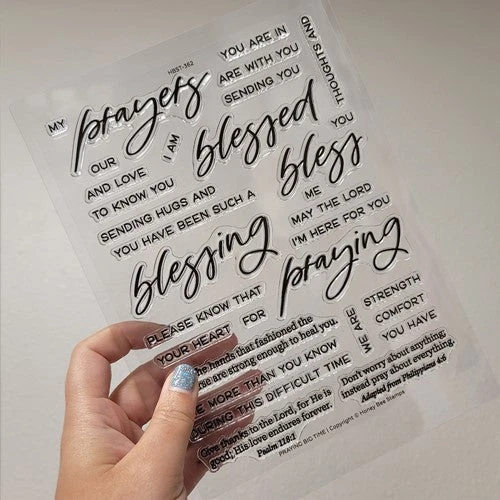 HBST-362
MY
prayers
YOU ARE IN
ARE WITH YOU
SENDING YOU
THOUGHTS AND
OUR
I AM
blessed
YOU
bless
AND LOVE
TO KNOW YOU
SENDING HUGS AND
YOU HAVE BEEN SUCH A
ME
MAY THE LORD
I'M HERE FOR YOU
blessing
praying
PLEASE KNOW THAT
YOUR HEART
FOR
WE ARE
STRENGTH
COMFORT
YOU HAVE
the hands that fashioned the
are strong enough to heal you.
MORE THAN YOU KNOW
DURING THIS DIFFICULT TIME
Don't worry about anything;
instead pray about everything.
Adapted from Philippians 4:6
Give thanks to the Lord, for He is
good; His love endures forever.
Psalm 118:1
PRAYING BIG TIME | Copyright © Honey Bee Stamps